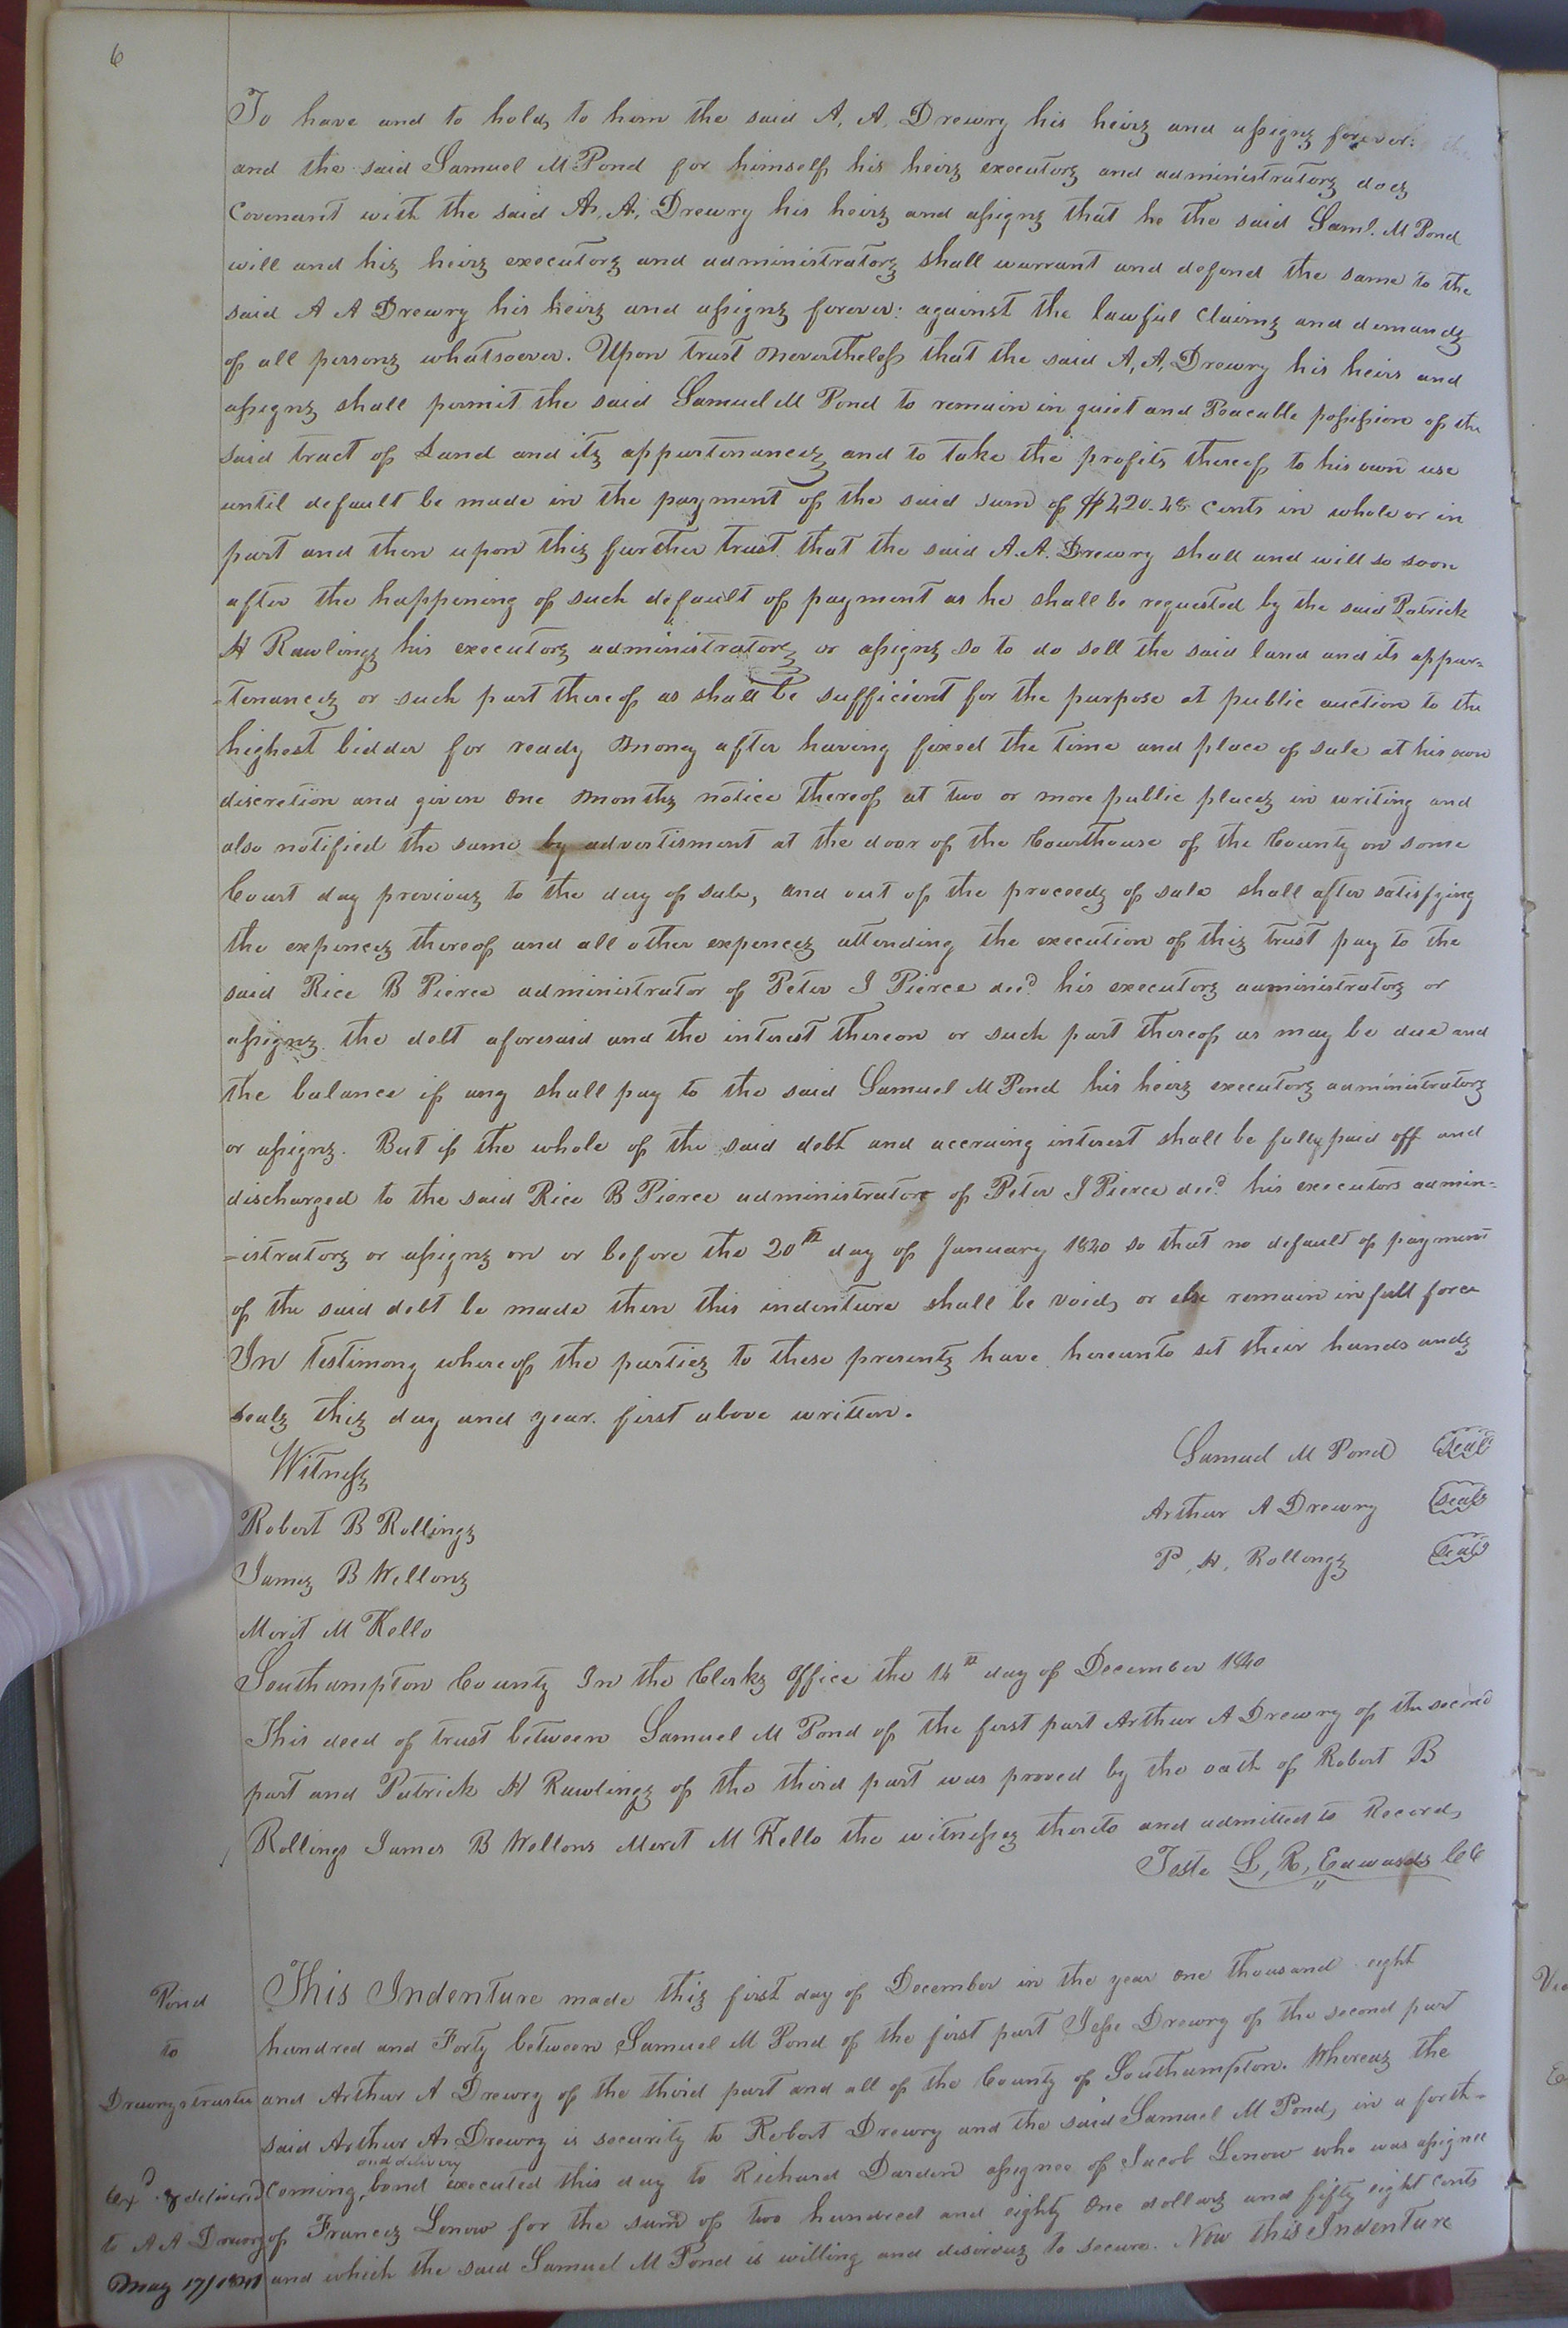 6
To have and to hold, to him the said A, A, Drewry his heirs and assigns forever:
and the said Samuel M Pond for himself his heirs executors and administrators does
Covenant with the said A, A, Drewry his heirs and assigns that he the said Saml. M Pond
will and his heirs executors and administrators shall warrant and defend the same to the
said A A Drewry his heirs and assigns forever: against the lawful Claims and demands
of all persons whatsoever. Upon trust Nevertheless that the said A, A, Drewry his heirs and
assigns shall permit the said Samuel M Pond to remain in quiet and Peacable possession of the
said tract of Land and its appurtenances and to take the profits thereof to his own use
until default be made in the payment of the said sum of $220.28 cents in whole or in
part and then upon this further trust that the said A. A. Drewry shall and will so soon
after the happening of such default of payment as he shall be requested by the said Patrick
H Rawlings his executors administrators or assigns so to do sell the said land and its appur=
=tenances or such part thereof as shall be sufficient for the purpose at public auction to the
highest bidder for ready Money after having fixed the time and place of sale at his own
discretion and given One Months notice thereof at two or more public places in writing and
also notified the same by advertisment at the door of the Courthouse of the County on some
Court day previous to the day of sale, and out of the proceeds of sale shall after satisfying
the expences thereof and all other expences attending the execution of this trust pay to the
said Rice B Pierce administrator of Peter J Pierce decd. his executors administrators or
assigns the debt aforesaid and the interest thereon or such part thereof as may be due and
the balance if any shall pay to the said Samuel M Pond his heirs executors administrators
or assigns. But if the whole of the said debt and accruing interest shall be fully paid off and
discharged to the said Rice B Pierce administrator of Peter J Pierce decd. his executors admin=
=istrators or assigns on or before the 20th day of January 1840 so that no default of payment
of the said debt be made then this indenture shall be void, or else remain in full force
In testimony whereof the parties to these presents have hereunto set their hands and
seals this day and year first above written.
Witness
Samuel M Pond seal
Robert B Rollings
Arthur A Drewry seal
James B Wellons
P, H, Rollings seal
Merit M Kello
Southampton County In the Clerks Office the 14th day of December 1840
This deed of trust between Samuel M Pond of the first part Arthur A Drewry of the second
part and Patrick H Rawlings of the third part was proved by the oath of Robert B
Rollings James B Wellons Merit M Kello the witnesses thereto and admitted to Record,
Teste L, R, Edwards CC
Pond
to
Drewrys trustee
Exd. & delivered
to A A Drewry
May 17/1841
This Indenture made this first day of December in the year One thousand eight
hundred and Forty between Samuel M Pond of the first part Jesse Drewry of the second part
and Arthur A Drewry of the third part and all of the County of Southampton. Whereas the
said Arthur A. Drewry is security to Robert Drewry and the said Samuel M Pond, in a forth=
and delivery
coming, bond executed this day to Richard Darden assignee of Jacob Lenow who was assignee
of Frances Lenow for the sum of two hundred and eighty One dollars and fifty eight cents
and which the said Samuel M Pond is willing and desirous to secure. Now this Indenture